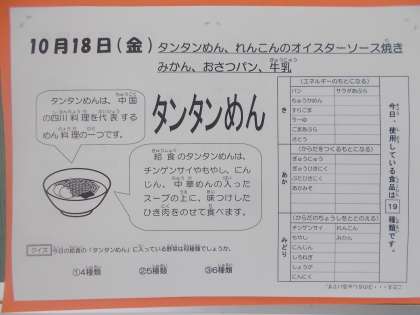 10月18日(金) タンタンめん、れんこんのオイスターソース焼き
みかん、おさつパン、牛乳
タンタンめんは、中国
の四川料理を代表する
めん料理の一つです。
タンタンめん
給食のタンタンめんは、
チンゲンサイやもやし、にん
じん、中華めんの入った
スープの上に、味つけした
ひき肉をのせて食べます。
クイズ 今日の給食の「タンタンめん」に入っている野菜は何種類でしょうか。
①4種類 ②5種類 ③6種類
今日、使用している食品は19種類です。
(エネルギーのもとになる)
き
パン サラダあぶら
ちゅうかめん
すりごま
ラーゆ
ごまあぶら
さとう
(からだをつくるもとになる)
あか
ぎゅうにゅう
ぶたひきにく
(からだのちょうしをととのえる)
みどり
チンゲンサイ れんこん
もやし みかん
にんじん
しょうが
にんにく